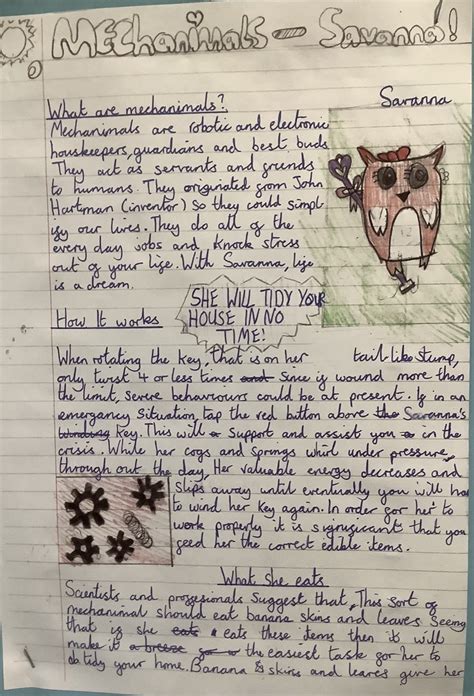 MEChanimals - Savanna!
What are mechanimals?
Savanna
Mechanimals are robotic and electronic
houskeepers, guardians and best buds.
They act as servants and greinds
to humans. They originated from John
Hartman (inventor) so they could simpl
ify our lives. They do all of the
every day jobs and knock stress
out of your life. With Savanna, life
is a dream.
SHE WILL TIDY YOUR
HOUSE IN NO
TIME!
How It works
When rotating the key, that is on her tail-like stump,
only twist 4 or less times and since if wound more than
the limit, severe behaviours could be at present. If in an
emergancy situation, tap the red button above the Savanna's
winding key. This will support and assist you in the
crisis. While her cogs and springs whirl under pressure,
through out the day, Her valuable energy decreases and
slips away until eventually you will had
to wind her key again. In order for her to
work properly it is signigicant that you
feed her the correct edible items.
What she eats
Scientists and proffesionals suggest that, This sort of
mechanimal should eat banana skins and leaves seeing
that is she eats eats these items then it will
make it a breeze for the easiest task for her to
do tidy your home. Banana & skins and leaves give her